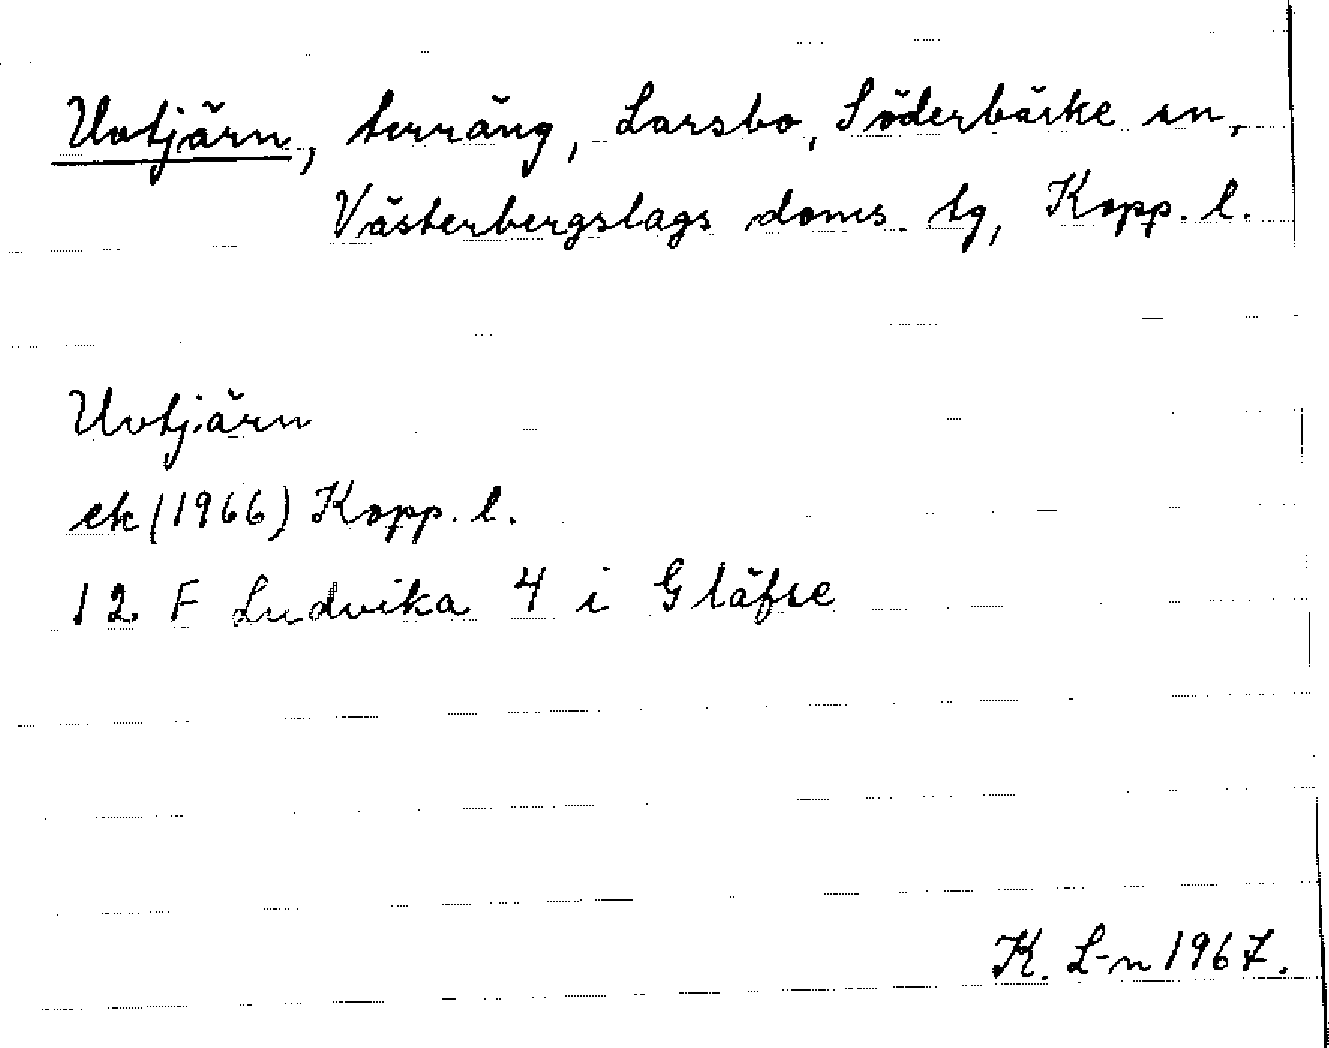 Uvtjärn, terräng, Larsbo, Söderbärke sn,
Västerbergslags doms. tg, Kopp. l.
Uvtjärn
ek (1966) Kopp. l.
12 F Ludvika 4 i Gläfse
K. L-n 1967.